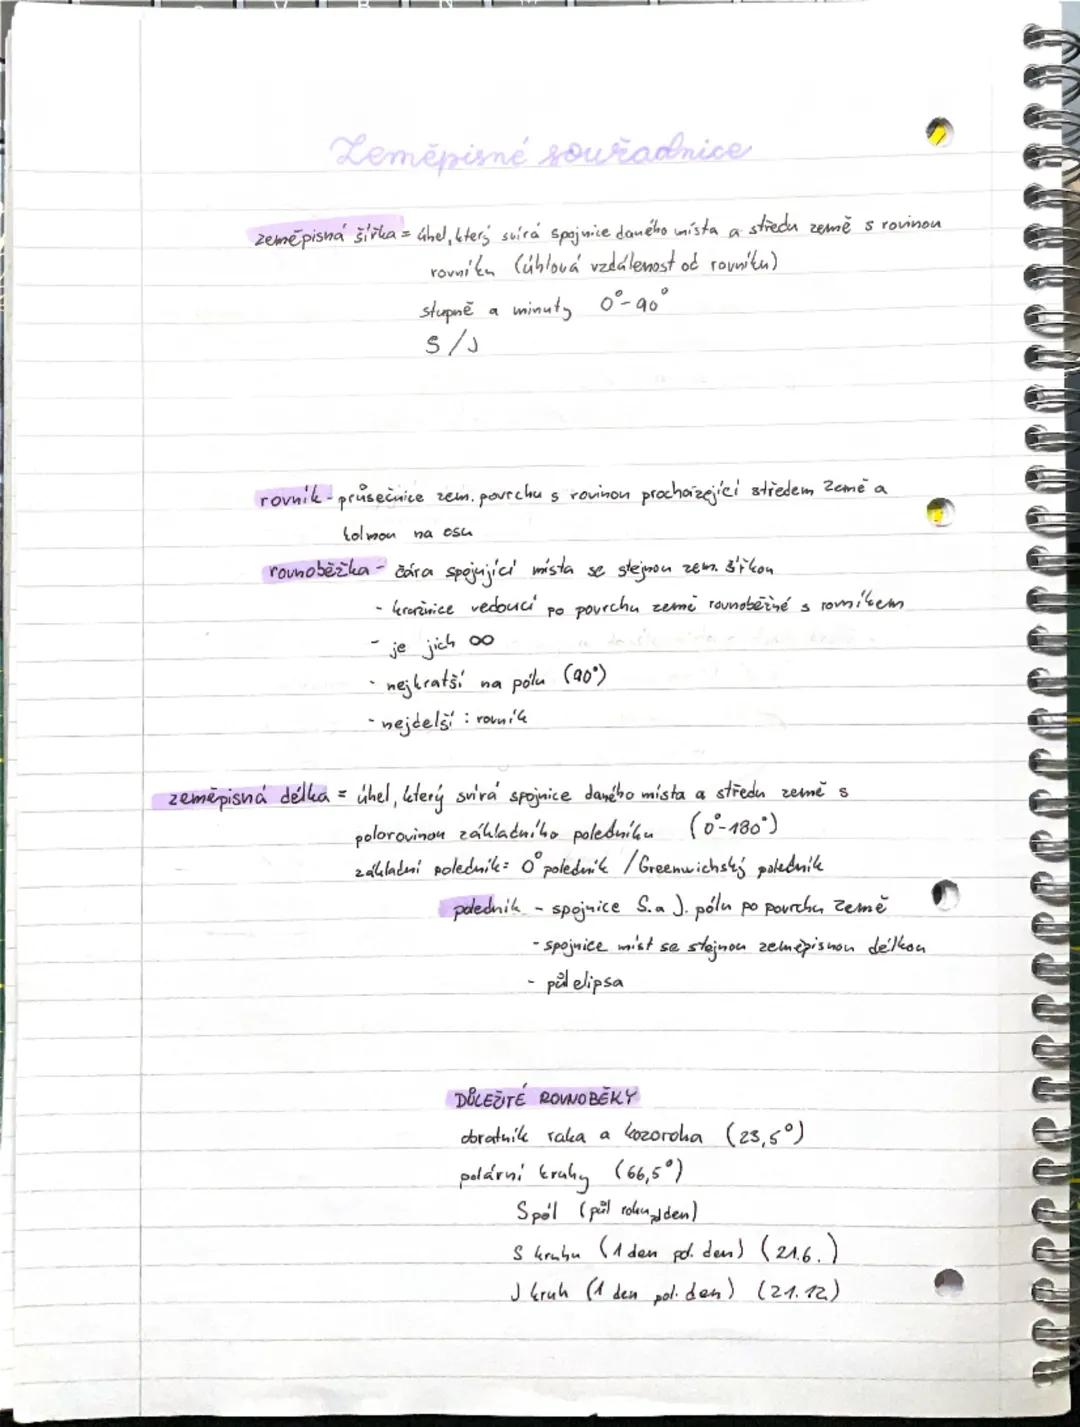 Zeměpisné souřadnice
zeměpisná šířka = úhel, který svírá spojnice daného místa a středu země s rovinou
rovníku (úhlová vzdálenost od rovníku)
stupně a minuty 0°-90°
S/J
rovník - průsečnice zem. povrchu s rovinou procházející středem Země a
kolmou na osu
rovnoběžka - čára spojující místa se stejnou zem. šířkou
- kružnice vedoucí po povrchu země rovnoběžné s rovníkem
- je jich ∞
- nejkratší na pólu (90°)
- nejdelší : rovník
zeměpisná délka = úhel, který svírá spojnice daného místa a středu země s
polorovinou základního poledníku (0°-180°)
základní poledník = 0° poledník / Greenwichský poledník
poledník - spojnice S. a J. pólu po povrchu Země
- spojnice míst se stejnou zeměpisnou délkou
- půl elipsa
DŮLEŽITÉ ROVNOBĚKY
obratník raka a kozoroha (23,5°)
polární kruhy (66,5°)
S pól (půl roku den)
S kruhu (1 den pol. den) (21.6.)
J kruh (1 den pol. den) (21.12)